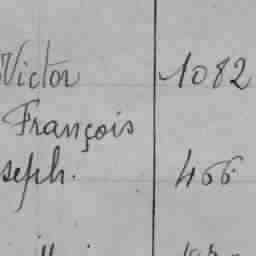 Victor 1082
François
seph. 466